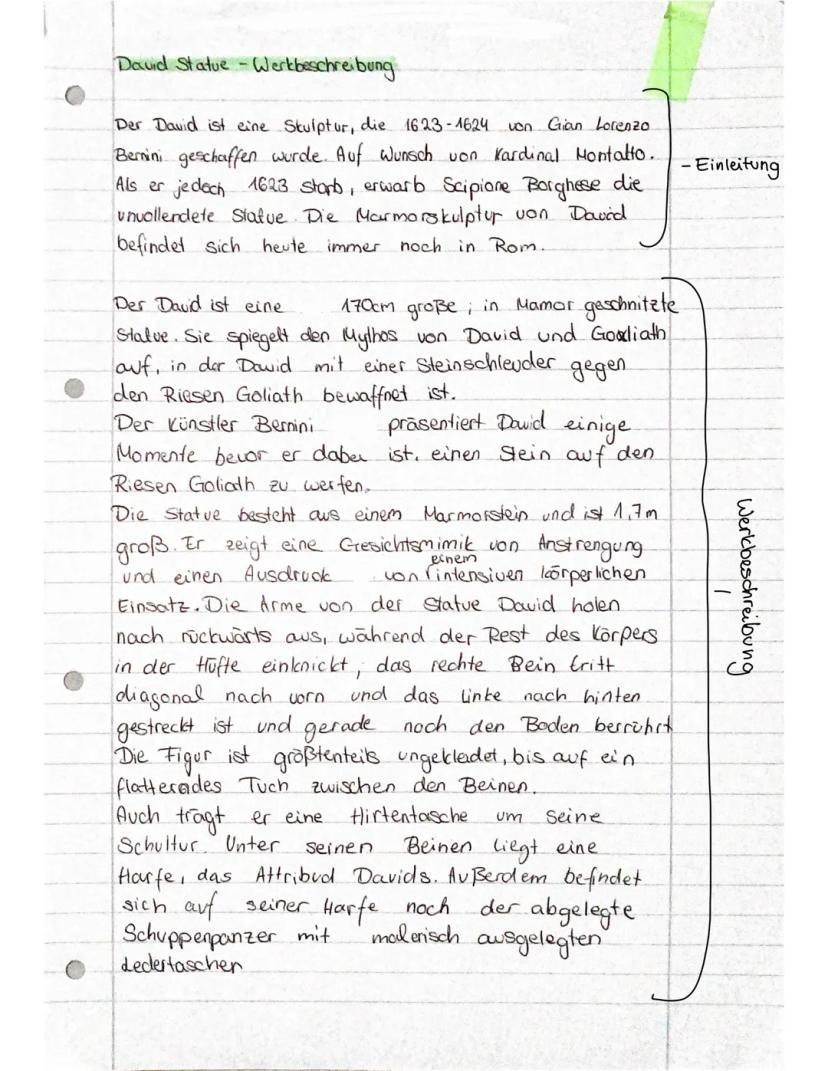 David Statue - Werkbeschreibung
Der David ist eine Skulptur, die 1623-1624 von Gian Lorenzo
Bernini geschaffen wurde. Auf Wunsch von Kardinal Montalto.
Als er jedoch 1623 starb, erwarb Scipione Borghese die
unvollendete Statue. Die Marmorskulptur von David
befindet sich heute immer noch in Rom.
- Einleitung
Der David ist eine 170cm große, in Mamor geschnitzte
Statue. Sie spiegelt den Mythos von David und Goliath
auf, in der David mit einer Steinschleuder gegen
den Riesen Goliath bewaffnet ist.
Der Künstler Bernini präsentiert David einige
Momente bevor er dabei ist, einen Stein auf den
Riesen Goliath zu werfen.
Die Statue besteht aus einem Marmorstein und ist 1,7m
groß. Er zeigt eine Gesichtsmimik von Anstrengung
und einen Ausdruck von einem intensiven körperlichen
Einsatz. Die Arme von der Statue David holen
nach rückwärts aus, während der Rest des Körpers
in der Hüfte einknickt, das rechte Bein tritt
diagonal nach vorn und das linke nach hinten
gestreckt ist und gerade noch den Boden berrührt
Die Figur ist größtenteils ungekleidet, bis auf ein
flatterendes Tuch zwischen den Beinen.
Auch trägt er eine Hirtentasche um seine
Schultur. Unter seinen Beinen liegt eine
Harfe, das Attribud Davids. Außerdem befindet
sich auf seiner Harfe noch der abgelegte
Schuppenpanzer mit malerisch ausgelegten
Ledertaschen
Werkbeschreibung